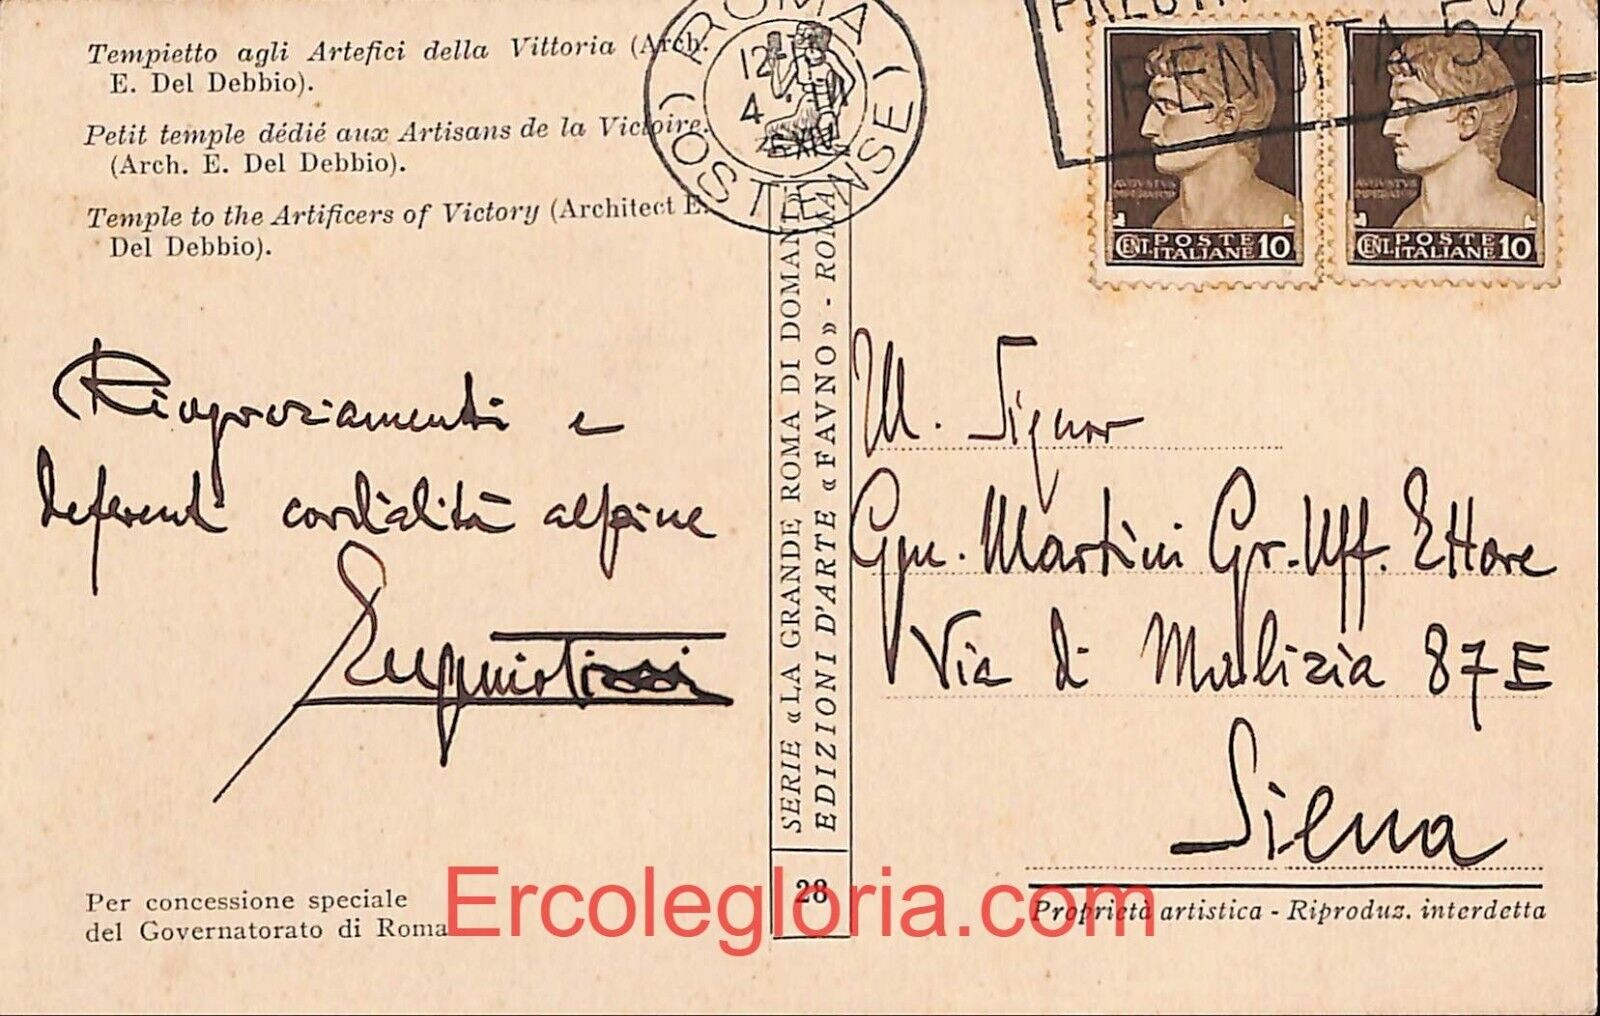 Tempietto agli Artefici della Vittoria (Arch.
E. Del Debbio).
Petit temple dédié aux Artisans de la Victoire.
(Arch. E. Del Debbio).
Temple to the Artificers of Victory (Architect E.
Del Debbio).
ROMA
(OSTIENSE)
12
4
RENDITA 5%
AVGVSTVS
IMPERATOR
CENT. POSTE ITALIANE 10
AVGVSTVS
IMPERATOR
CENT. POSTE ITALIANE 10
Ringraziamenti e
deferenti cordialità alpine
SERIE «LA GRANDE ROMA DI DOMANI»
EDIZIONI D'ARTE «FAVNO» - ROMA
28
Ill. Signor
Gen. Martini Gr. Uff. Ettore
Via di Malizia 87E
Siena
Per concessione speciale
del Governatorato di Roma
Proprietà artistica - Riproduz. interdetta
Ercolegloria.com